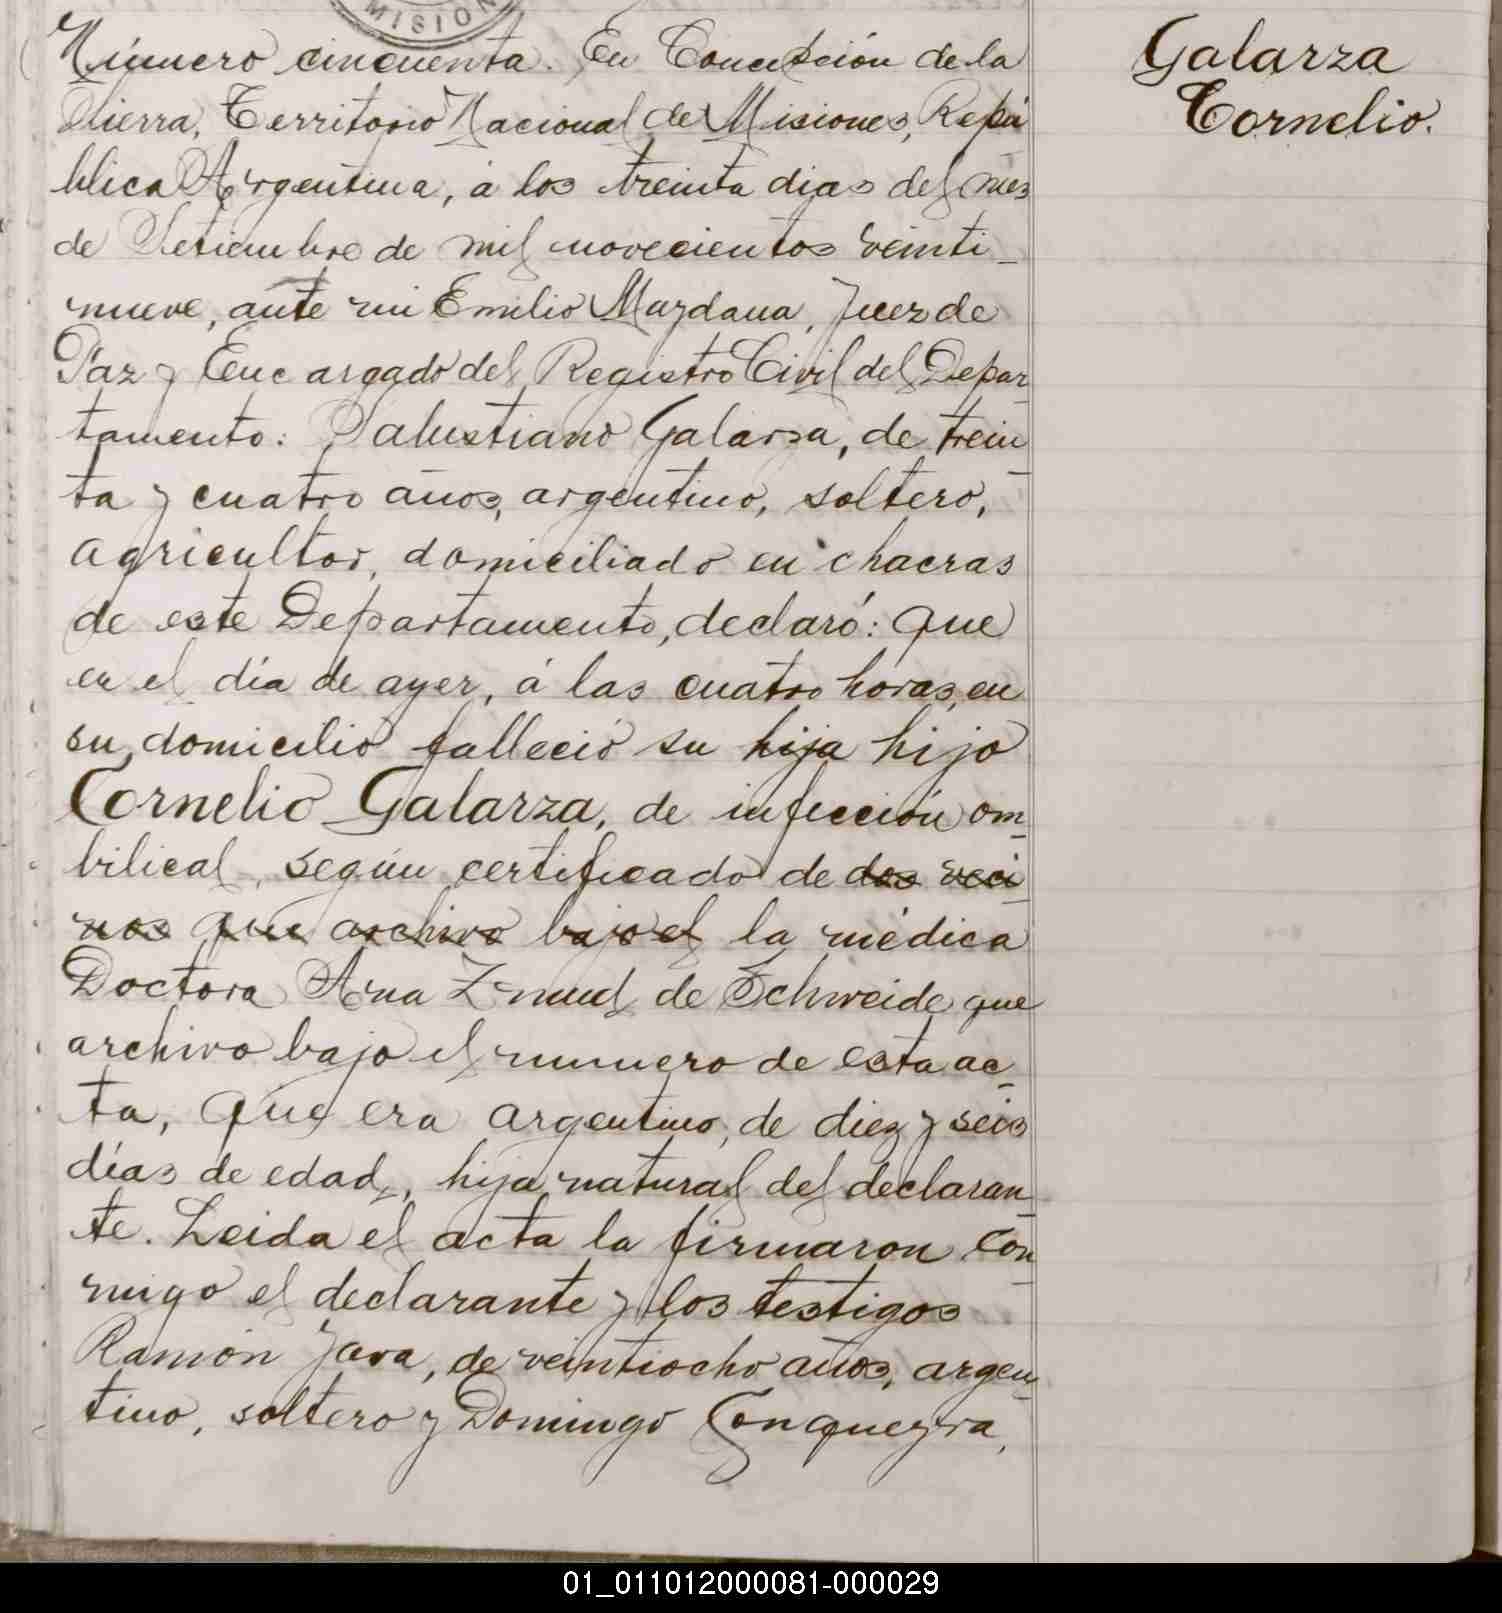 MISION
Número cincuenta. En Concepción de la
Sierra, Territorio Nacional de Misiones, Repú
blica Argentina, á los treinta dias del mes
de Setiembre de mil novecientos veinti-
nueve, ante mi Emilio Mazdana, Juez de
Paz y Encargado del Registro Civil del Depar-
tamento: Salustiano Galarza, de trein-
ta y cuatro años, argentino, soltero,
agricultor, domiciliado en chacras
de este Departamento, declaró: que
en el día de ayer, á las cuatro horas, en
su domicilio falleció su hija hijo
Cornelio Galarza, de infección om-
bilical, según certificado de dos veci-
nos que archivo bajo el la médica
Doctora Ana Zmud de Schweide que
archivo bajo el numero de esta ac-
ta, que era argentino, de diez y seis
días de edad, hija natural del declaran-
te. Leida el acta la firmaron con-
migo el declarante y los testigos
Ramón Java, de veintiocho años, argen-
tino, soltero y Domingo Conqueyra,
Galarza
Cornelio.
01_011012000081-000029